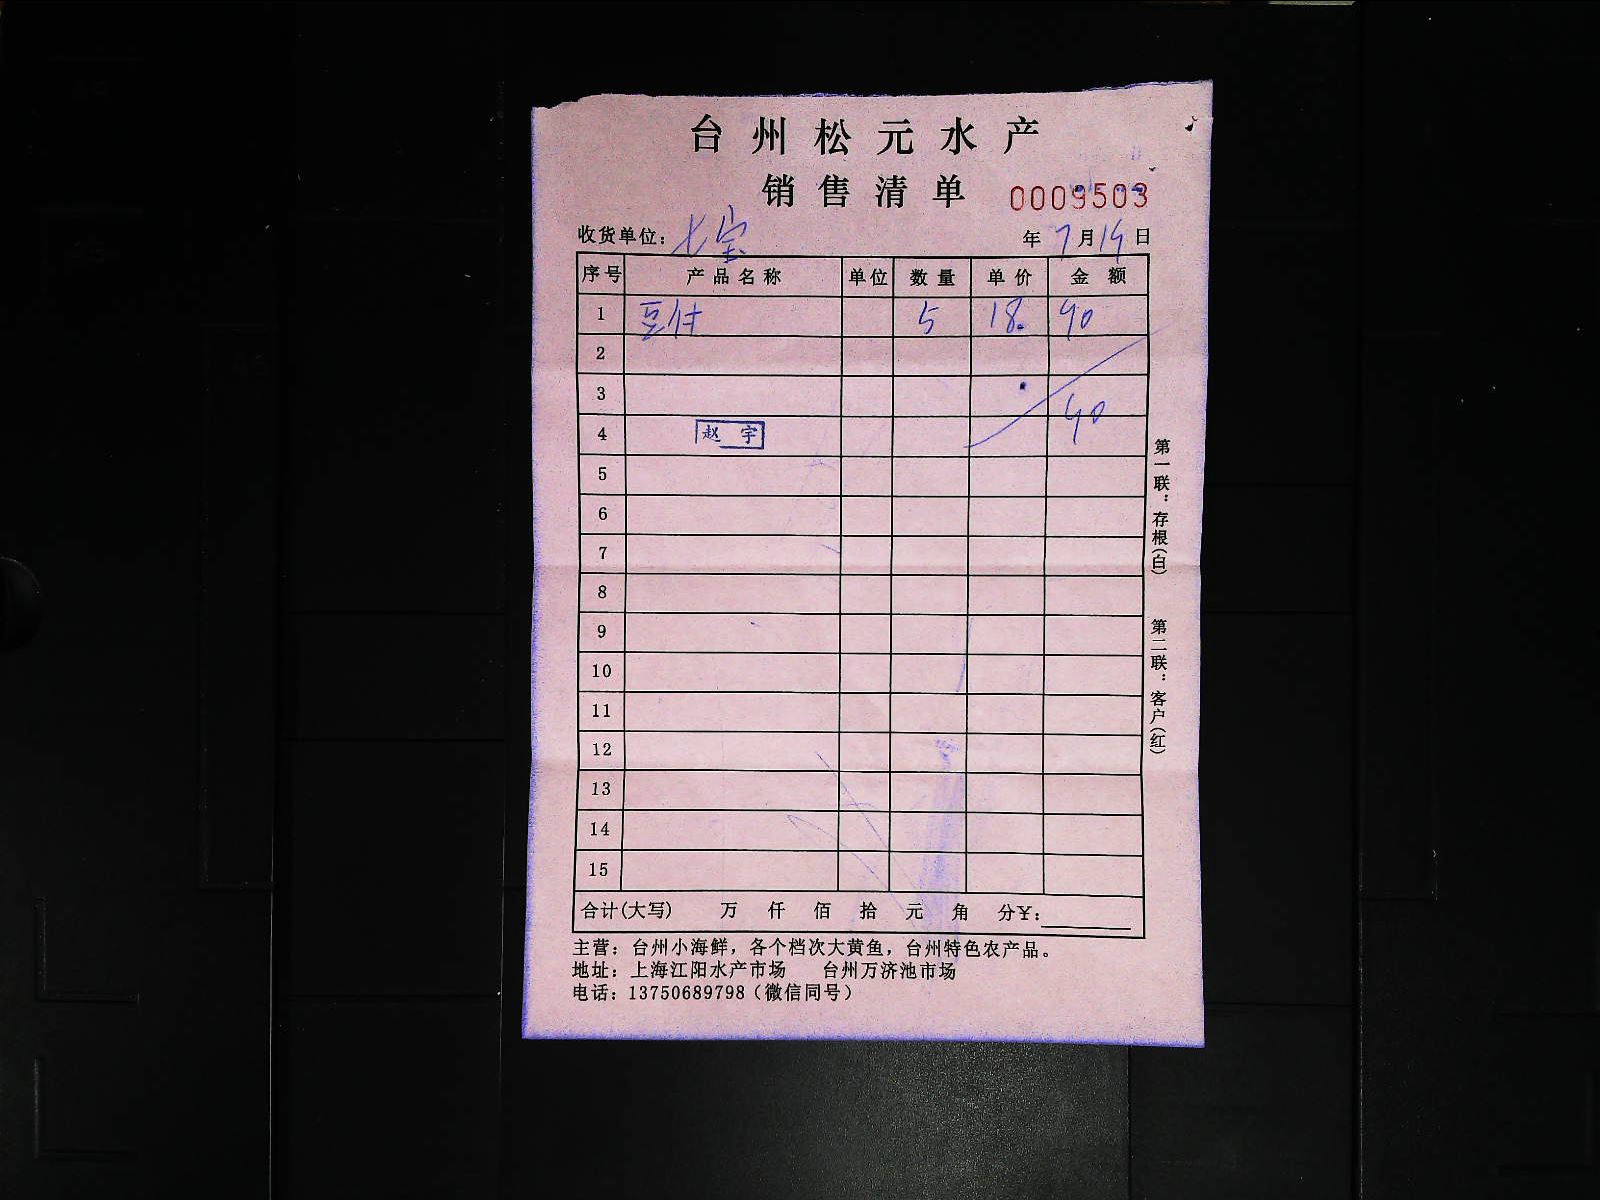 台州松元水产
销售清单 0009503
收货单位：七宝 年7月19日
序号 产品名称 单位 数量 单价 金额
1 豆付 5 18. 90
2
3 90
4 赵宇
5
6
7
8
9
10
11
12
13
14
15
合计(大写) 万 仟 佰 拾 元 角 分¥：
主营：台州小海鲜，各个档次大黄鱼，台州特色农产品。
地址：上海江阳水产市场 台州万济池市场
电话：13750689798（微信同号）
第一联：存根(白) 第二联：客户(红)